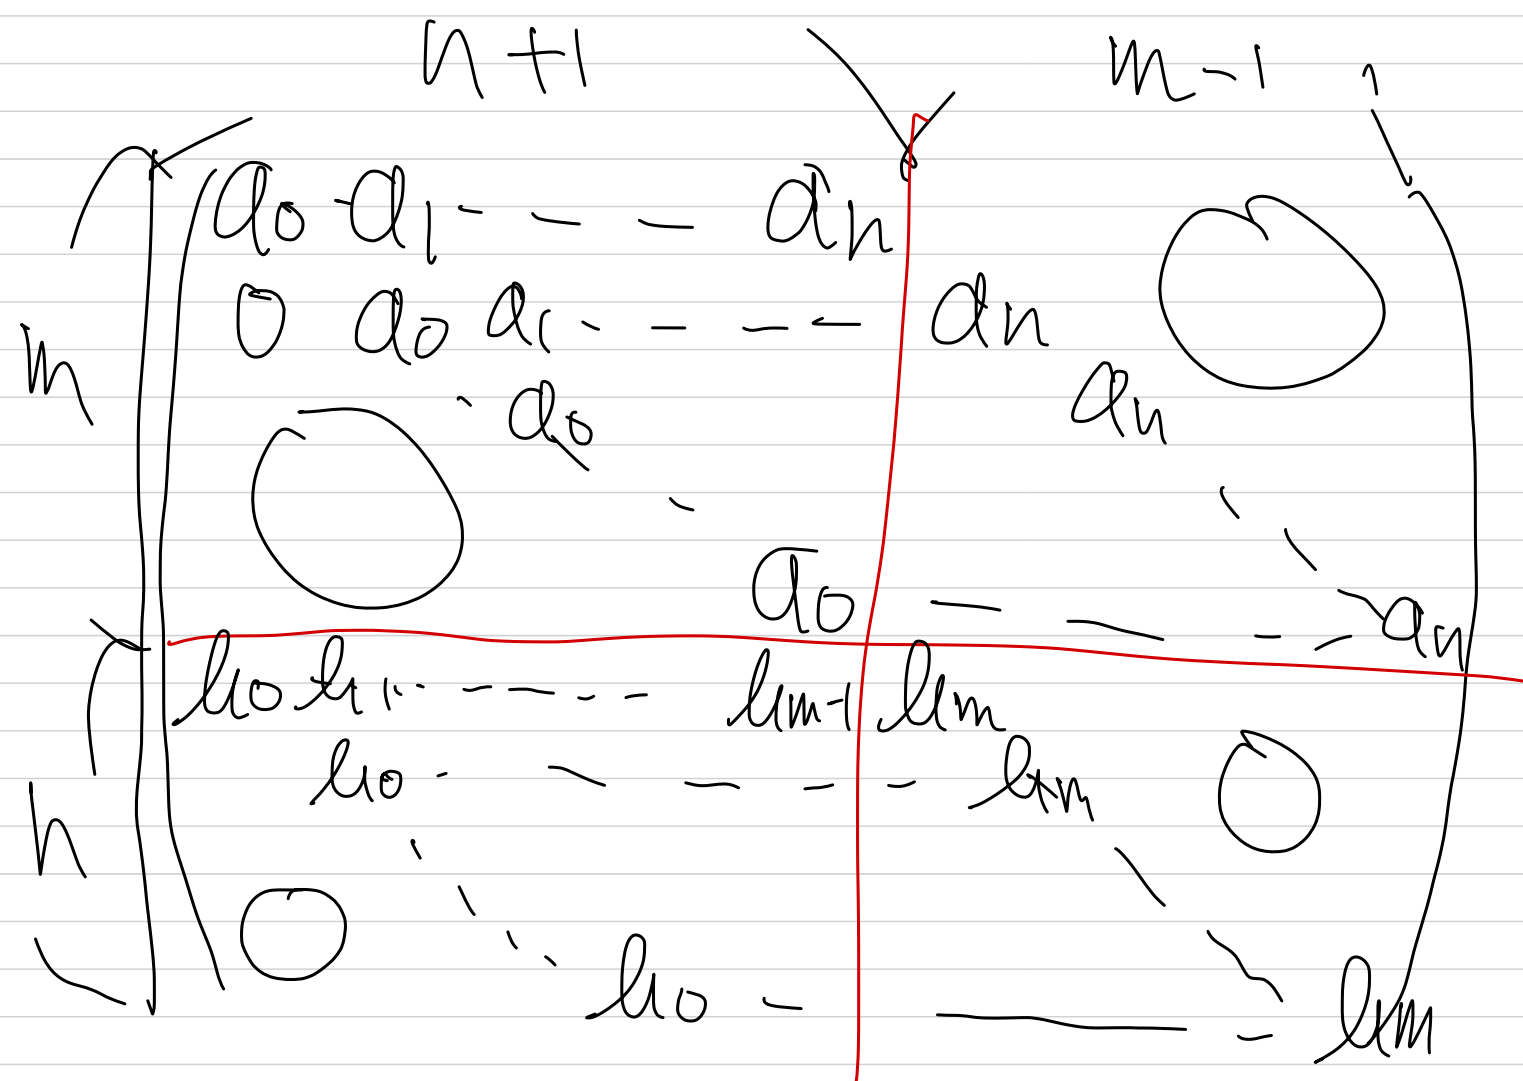 n+1 m-1
a0 a1 - - - an
0 a0 a1 - - - - an 0
m a0 an
0
a0 - - - - an
b0 b1 - - - - - bm-1 bm
b0 - - - - - bm 0
n
0
b0 - - - bm